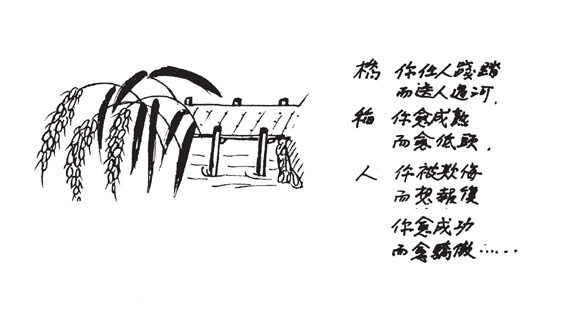 橋 你任人踐踏
而送人過河.
稻 你愈成熟
而愈低頭.
人 你被欺侮
而想報復
你愈成功
而愈驕傲……